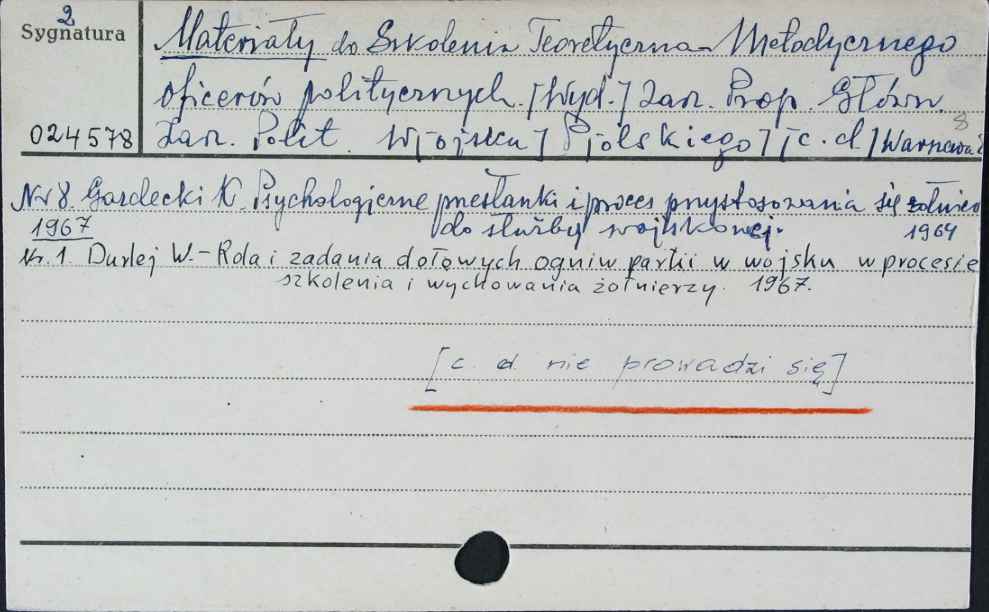 2
Sygnatura
Materiały do Szkolenia Teoretyczno-Metodycznego
oficerów politycznych. [Wyd.] Zarz. Prop. Główn.
024578 Zarz. Polit. W[ojska] P[olskiego] [c.d.] Warszawa
8
Nr 8. Gardecki K. Psychologiczne przesłanki i proces przystosowania się żołnierza
do służby wojskowej. 1964
1967
Nr. 1. Durlej W. - Rola i zadania dołowych ogniw partii w wojsku w procesie
szkolenia i wychowania żołnierzy. 1967.
[c. d. nie prowadzi się]